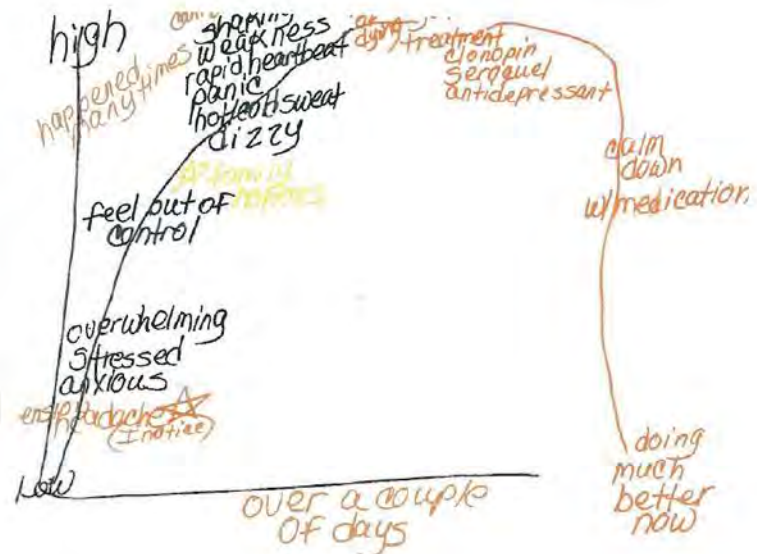 high
happened
many times
shaking
weakness
rapid heartbeat
panic
hot cold sweat
dizzy
family
notices
feel out of
control
overwhelming
stressed
anxious
headache
(I notice)
Low
over a couple
of days
dying
treatment
clonopin
seroquel
antidepressant
calm
down
w/medication
doing
much
better
now